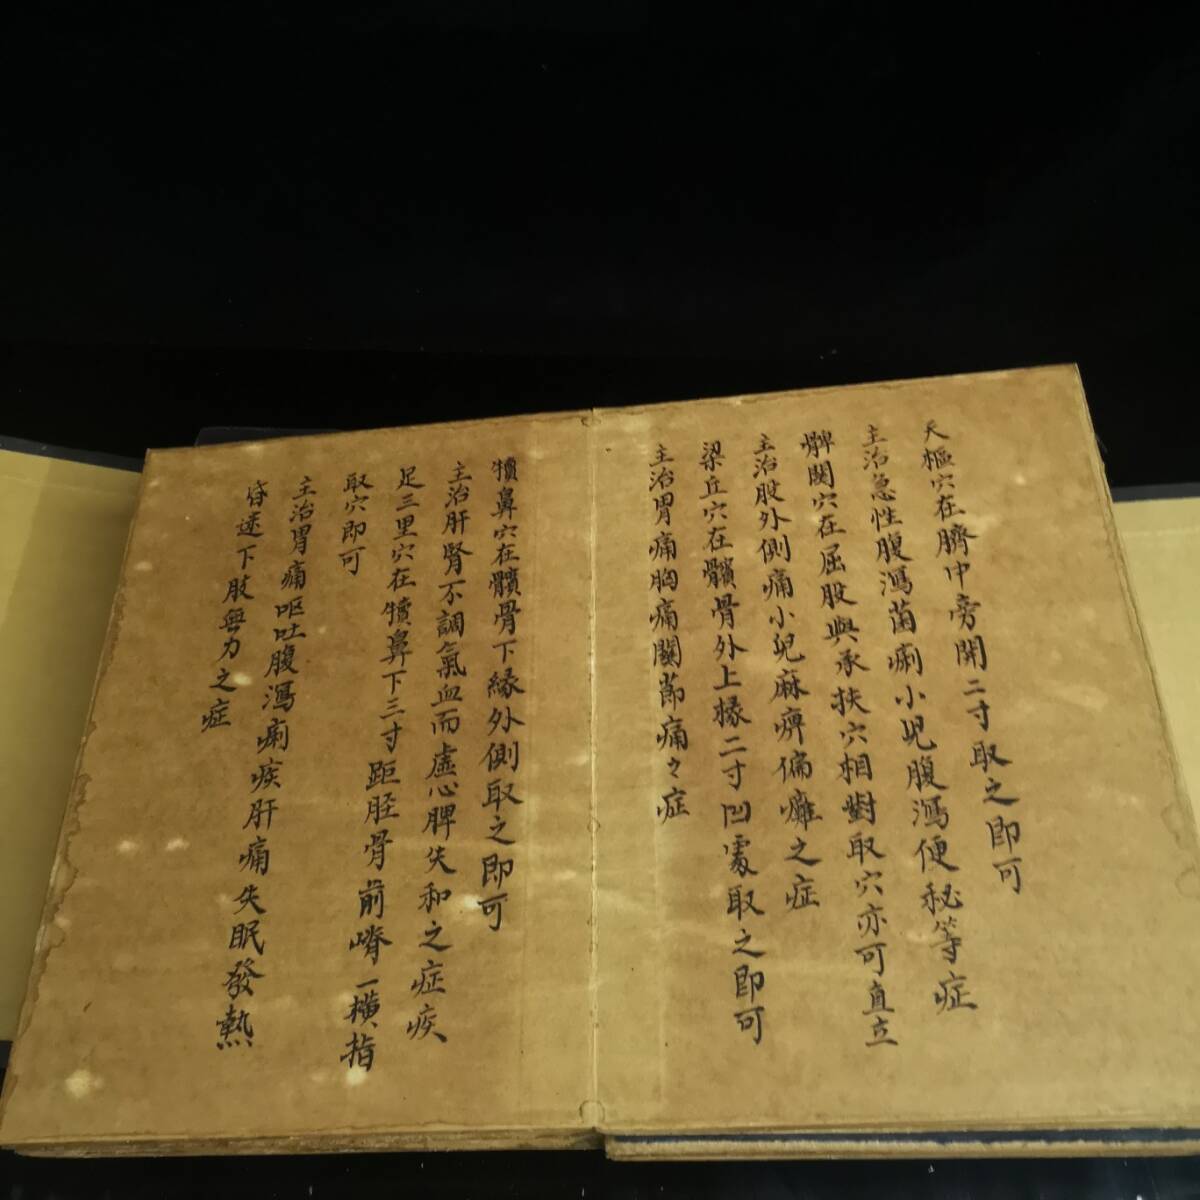 天樞穴在臍中旁開二寸取之即可
主治急性腹瀉菌痢小兒腹瀉便秘等症
髀関穴在屈股與承扶穴相對取穴亦可直立
主治股外側痛小兒麻痹偏癱之症
梁丘穴在髕骨外上緣二寸凹處取之即可
主治胃痛胸痛關節痛々症
犢鼻穴在髕骨下緣外側取之即可
主治肝腎不調氣血而虛心脾失和之症疾
足三里穴在犢鼻下三寸距胫骨前嵴一橫指
取穴即可
主治胃痛嘔吐腹瀉痢疾肝痛失眠發熱
昏迷下肢無力之症